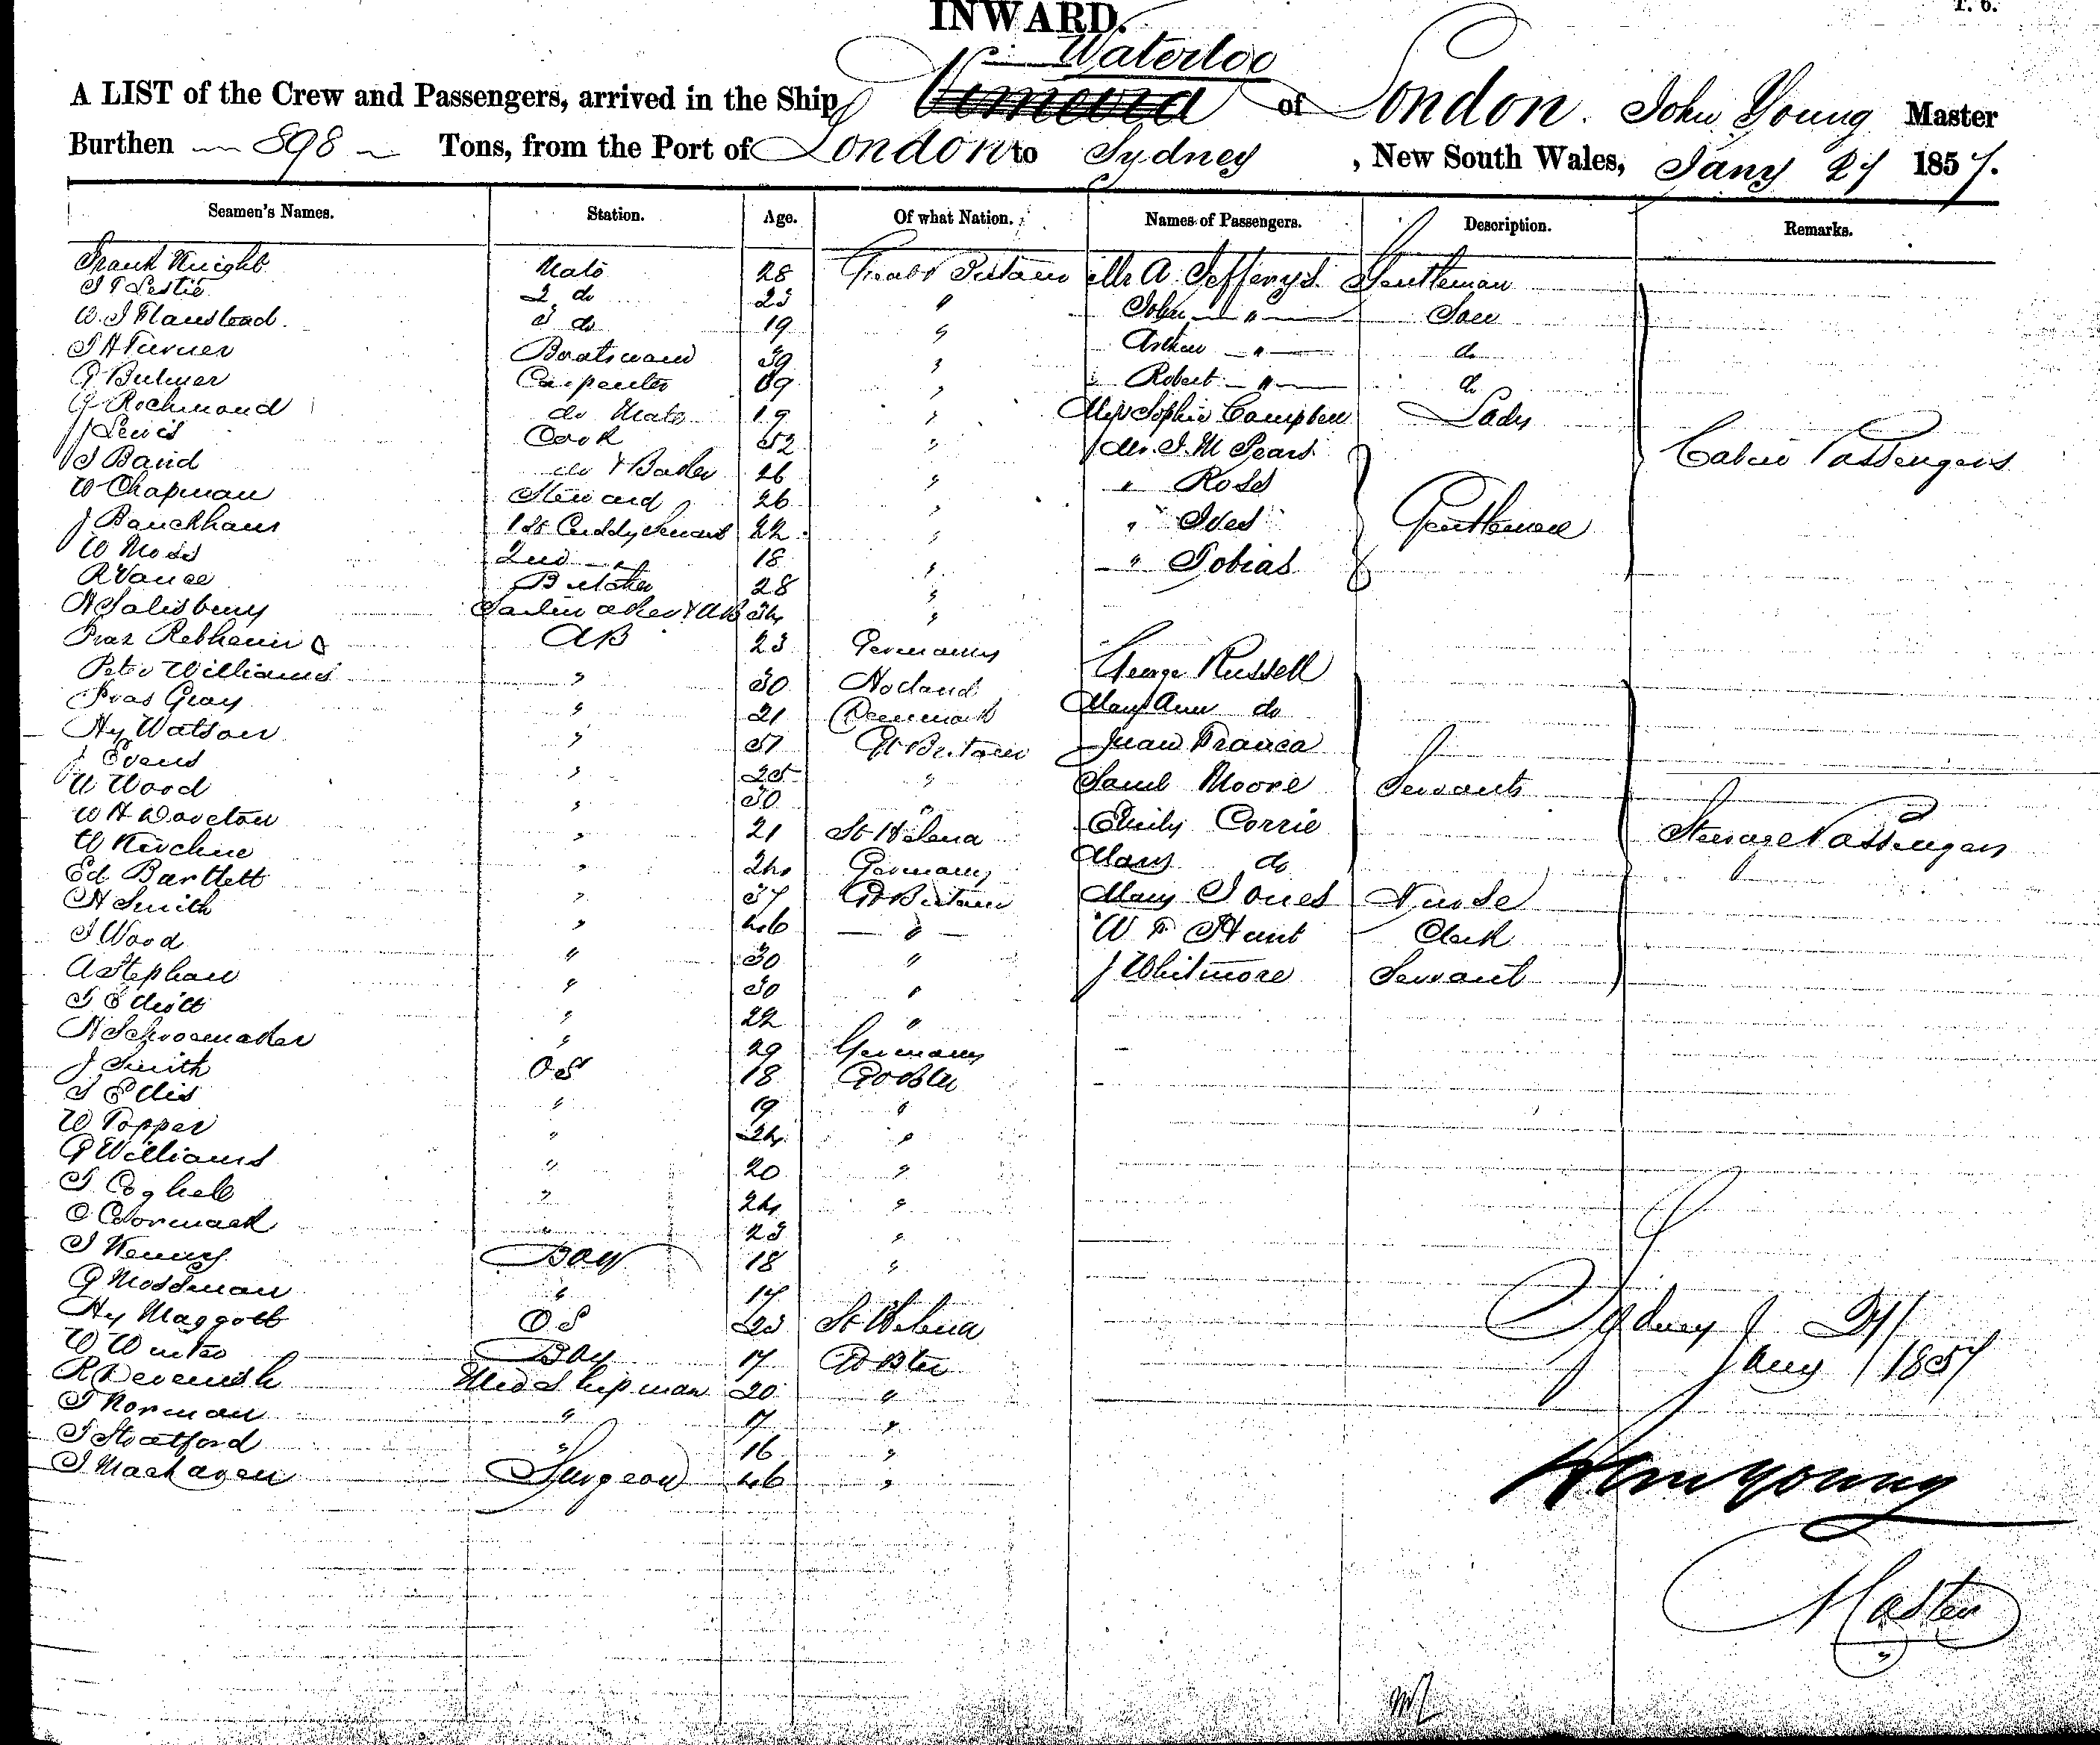 INWARD.
T. 6.
Waterloo
A LIST of the Crew and Passengers, arrived in the Ship of London. John Young Master
Burthen 898 Tons, from the Port of London to Sydney, New South Wales, Jany 27 1857.
Seamen's Names. Station. Age. Of what Nation. Names of Passengers. Description. Remarks.
Frank Knight Mate 28 Great Britain Mr A. Jefferys. Gentleman
Leslie 2 do 23 " John " Son
W. J Flanstead. 3 do 19 " Arthur " do
J H Turner Boatswain 39 " Robert " do
G Bulmer Carpenter 39 " Miss Sophia Campbell Lady
G Rochmond do Mate 19 " Mr. J. M Pears
J Lewis Cook 52 " " Ross Cabin Passengers
J Baird do & Baker 26 " " Ives Gentlemen
W Chapman Steward 26 " " Tobias
J Bauckhaus 1st Cuddy Servant 22 "
W Moss 2nd " 18 "
R Vance Butcher 28 "
H Salisbury Sailmaker & AB 34 "
AB 23 Germany George Russell
Peter Williams " 30 Holand Mary Ann do
Gray " 21 Denmark Juan Franca
Hy Watson " 37 Gt Britain Saml Moore Servants
J Evens " 25 " Emily Corrie
W Wood " 30 " Mary do Steerage Passengers
W H " 21 St Helena Mary Jones Nurse
W Kirchne " 24 Germany W F Hunt Clerk
Ed Bartlett " 37 Gt Britain J Whitmore Servant
H Smith " 46 "
J Wood " 30 "
A Stephan " 30 "
J Elliott " 22 "
H Schoomaker " 29 Germany
J Smith OS 18 Gt Btn
J Ellis " 19 "
W Topper " 24 "
G Williams " 20 "
J Coghell " 24 "
C Cormack " 23 "
J Kenny Boy 18 "
G Mossman " 17 "
Hy Maggott OS 23 St Helena
W Winter Boy 17 Gt Btn
R Devenish Midshipman 20 "
J Norman " 17 "
J Stratford " 16 "
J Machaven Surgeon 46 "
Sydney 27
Jany 1857
John Young
Master